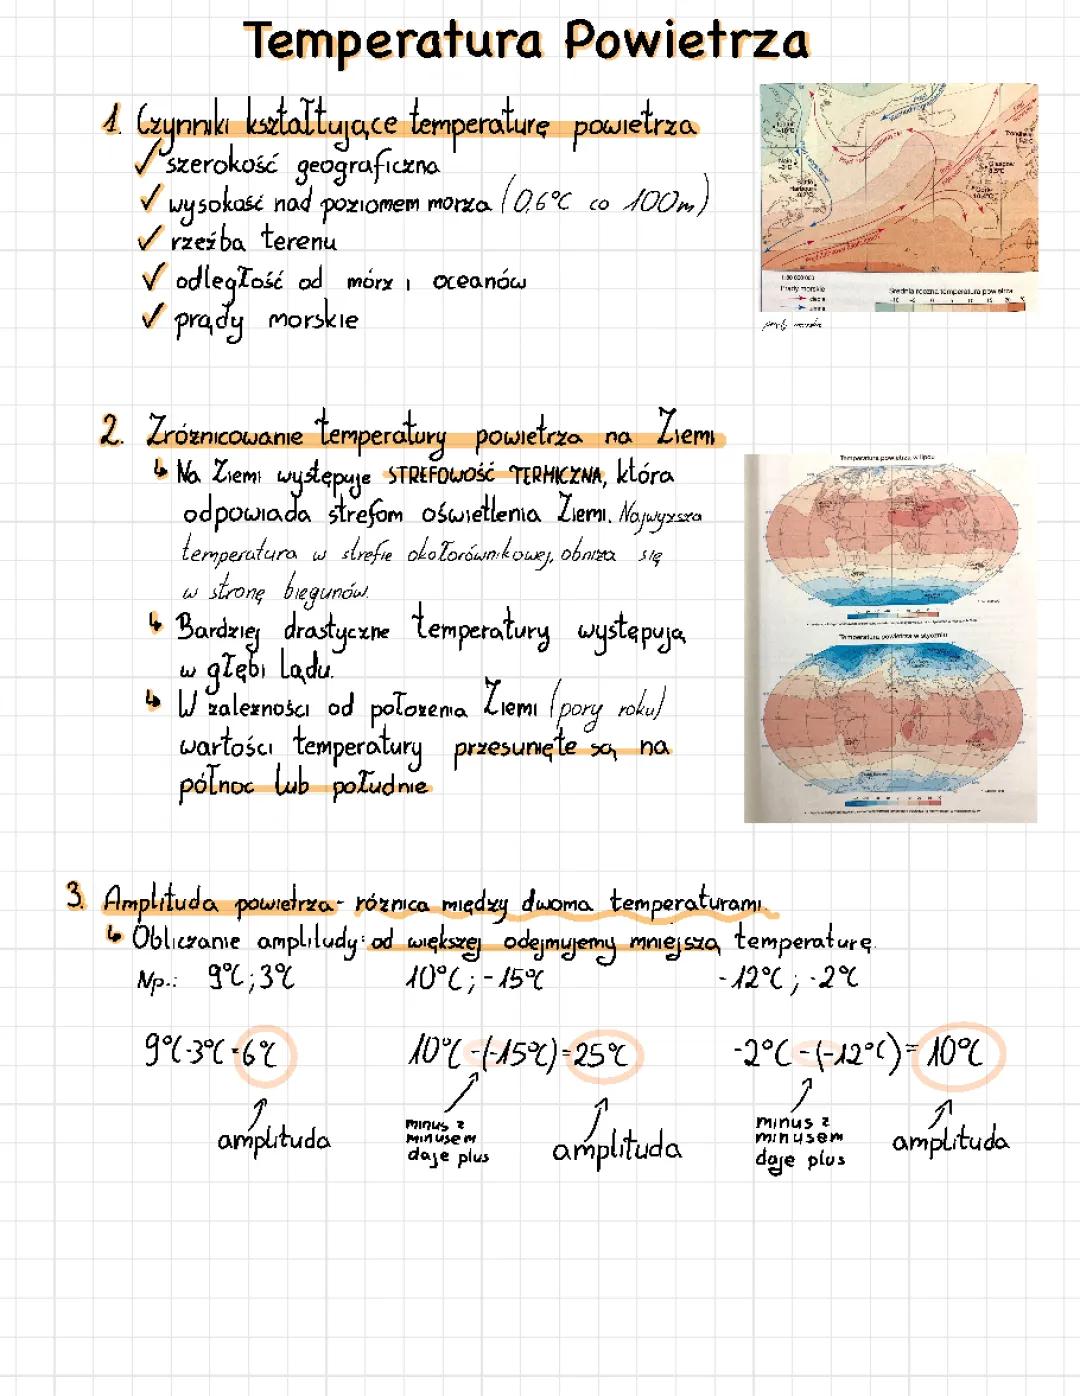 Temperatura Powietrza
1. Czynniki kształtujące temperaturę powietrza
✓ szerokość geograficzna
✓ wysokość nad poziomem morza (0,6°C co 100m)
✓ rzeźba terenu
✓ odległość od mórz i oceanów
✓ prądy morskie
Glasgow
1:80 000 000
Prądy morskie
ciepłe
zimne
Średnia roczna temperatura powietrza
prądy morskie
2. Zróżnicowanie temperatury powietrza na Ziemi
↳ Na Ziemi występuje STREFOWOŚĆ TERMICZNA, która
odpowiada strefom oświetlenia Ziemi. Najwyższa
temperatura w strefie okołorównikowej, obniża się
w stronę biegunów.
↳ Bardziej drastyczne temperatury występują
w głębi lądu.
↳ W zależności od położenia Ziemi (pory roku)
wartości temperatury przesunięte są na
północ lub południe
Temperatura powietrza w lipcu
Temperatura powietrza w styczniu
3. Amplituda powietrza - różnica między dwoma temperaturami.
↳ Obliczanie amplitudy: od większej odejmujemy mniejszą temperaturę.
Np.: 9°C; 3°C 10°C; -15°C -12°C; -2°C
9°C-3°C=6°C 10°C-(-15°C)=25°C -2°C-(-12°C)=10°C
amplituda
minus z
minusem
daje plus
amplituda
minus z
minusem
daje plus
amplituda